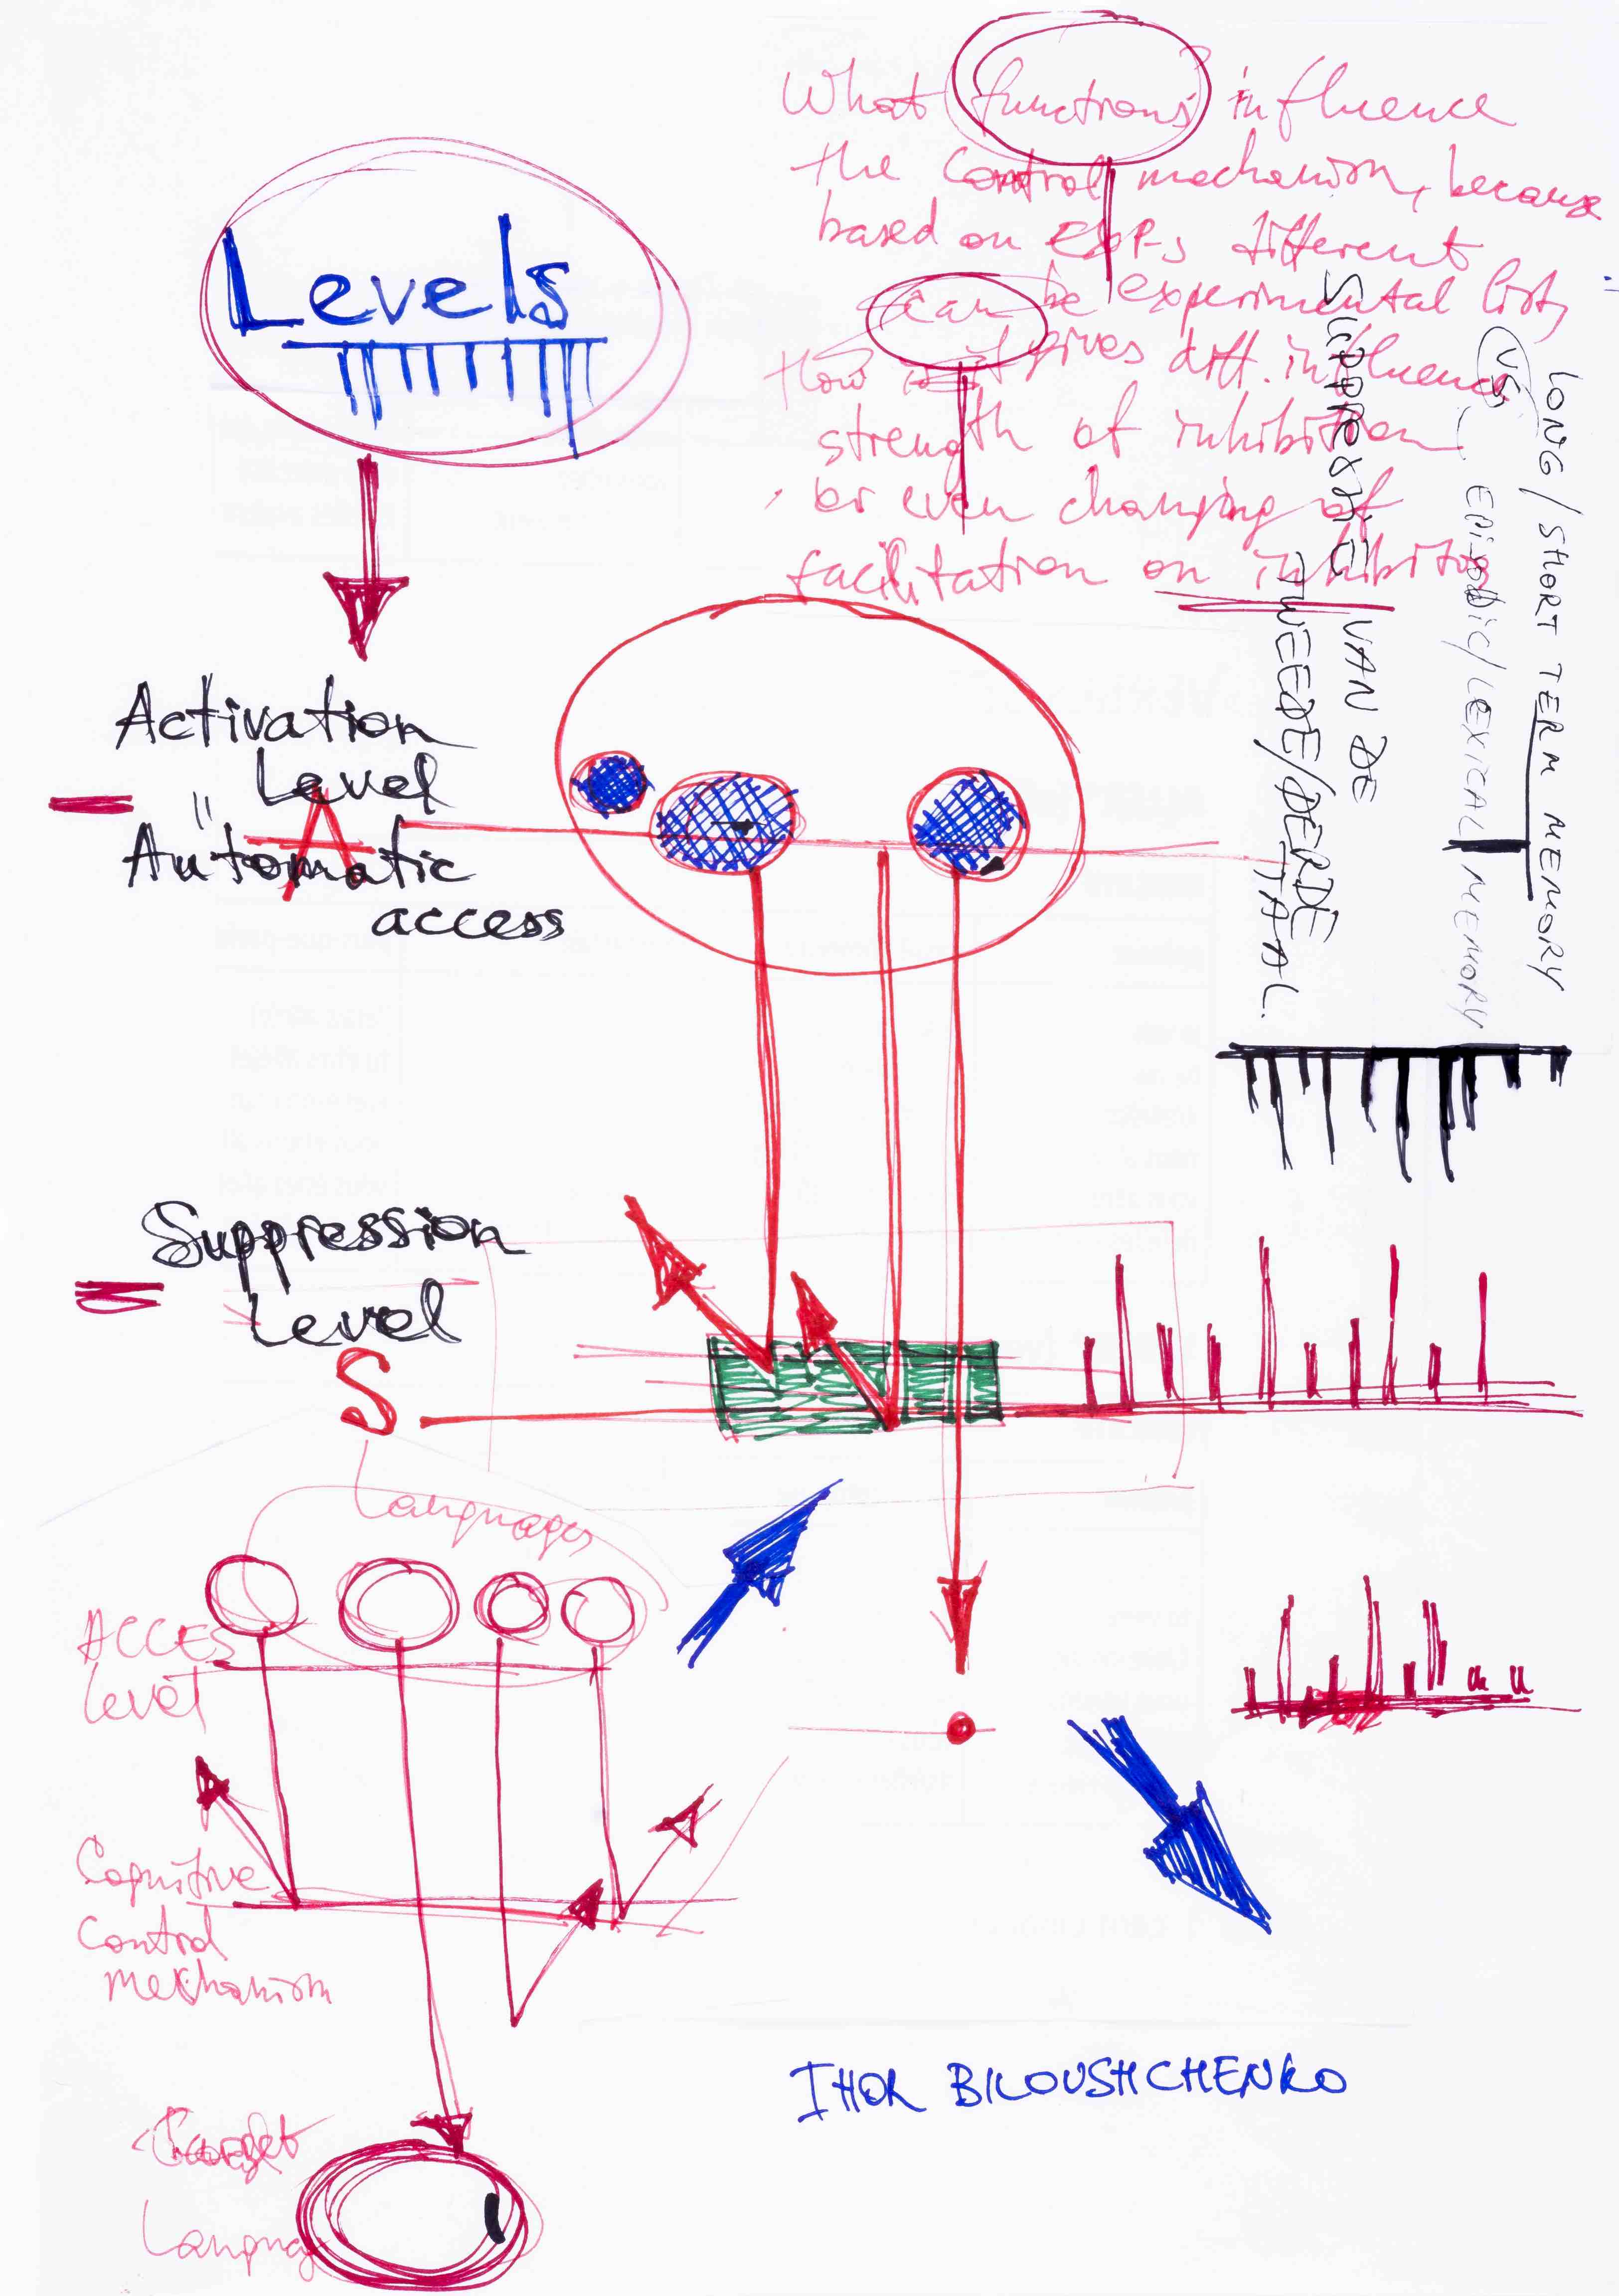 What functions influence
the control mechanism, because
based on ERP-s different
can be experimental list,
How it gives diff. influence
strength of inhibition
or even changing of
facilitation on inhibition
Levels
Activation
Level
"
A
Automatic
access
Suppression
Level
S
LONG/SHORT TERM MEMORY
VS
EPISODIC/LEXICAL MEMORY
SUPPRESSIE VAN DE
TWEEDE/DERDE TAAL.
Languages
ACCES
Level
Cognitive
Control
mekhanism
Target
Languag
IHOR BILOUSHCHENKO